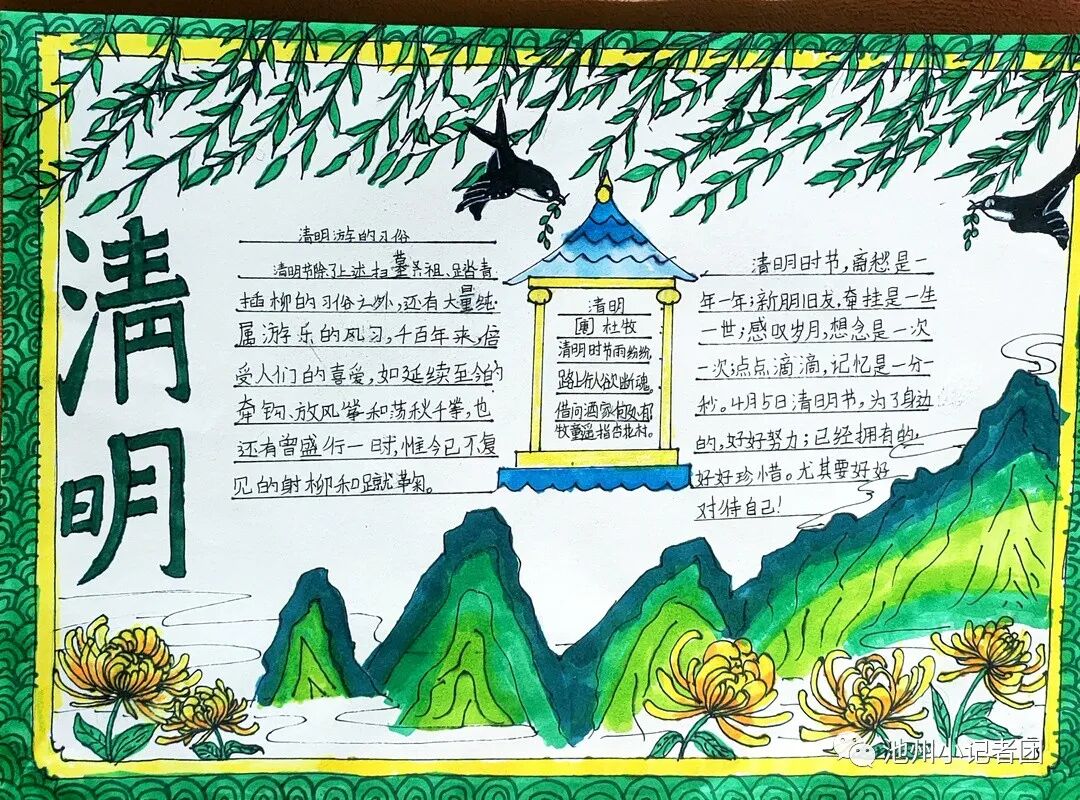 清明
清明游的习俗
清明节除了上述扫墓祭祖、踏青
插柳的习俗之外,还有大量纯
属游乐的风习,千百年来,倍
受人们的喜爱,如延续至今的
牵钩、放风筝和荡秋千拳,也
还有曾盛行一时,惟今已不复
见的射柳和蹴鞠。
清明
[唐] 杜牧
清明时节雨纷纷,
路上行人欲断魂。
借问酒家何处有
牧童遥指杏花村。
清明时节,离愁是一
年一年;新朋旧友,牵挂是一生
一世;感叹岁月,想念是一次
一次;点点滴滴,记忆是一分一
秒。4月5日清明节,为了身边
的,好好努力;已经拥有的,
好好珍惜。尤其要好好
对待自己!
池州小记者团